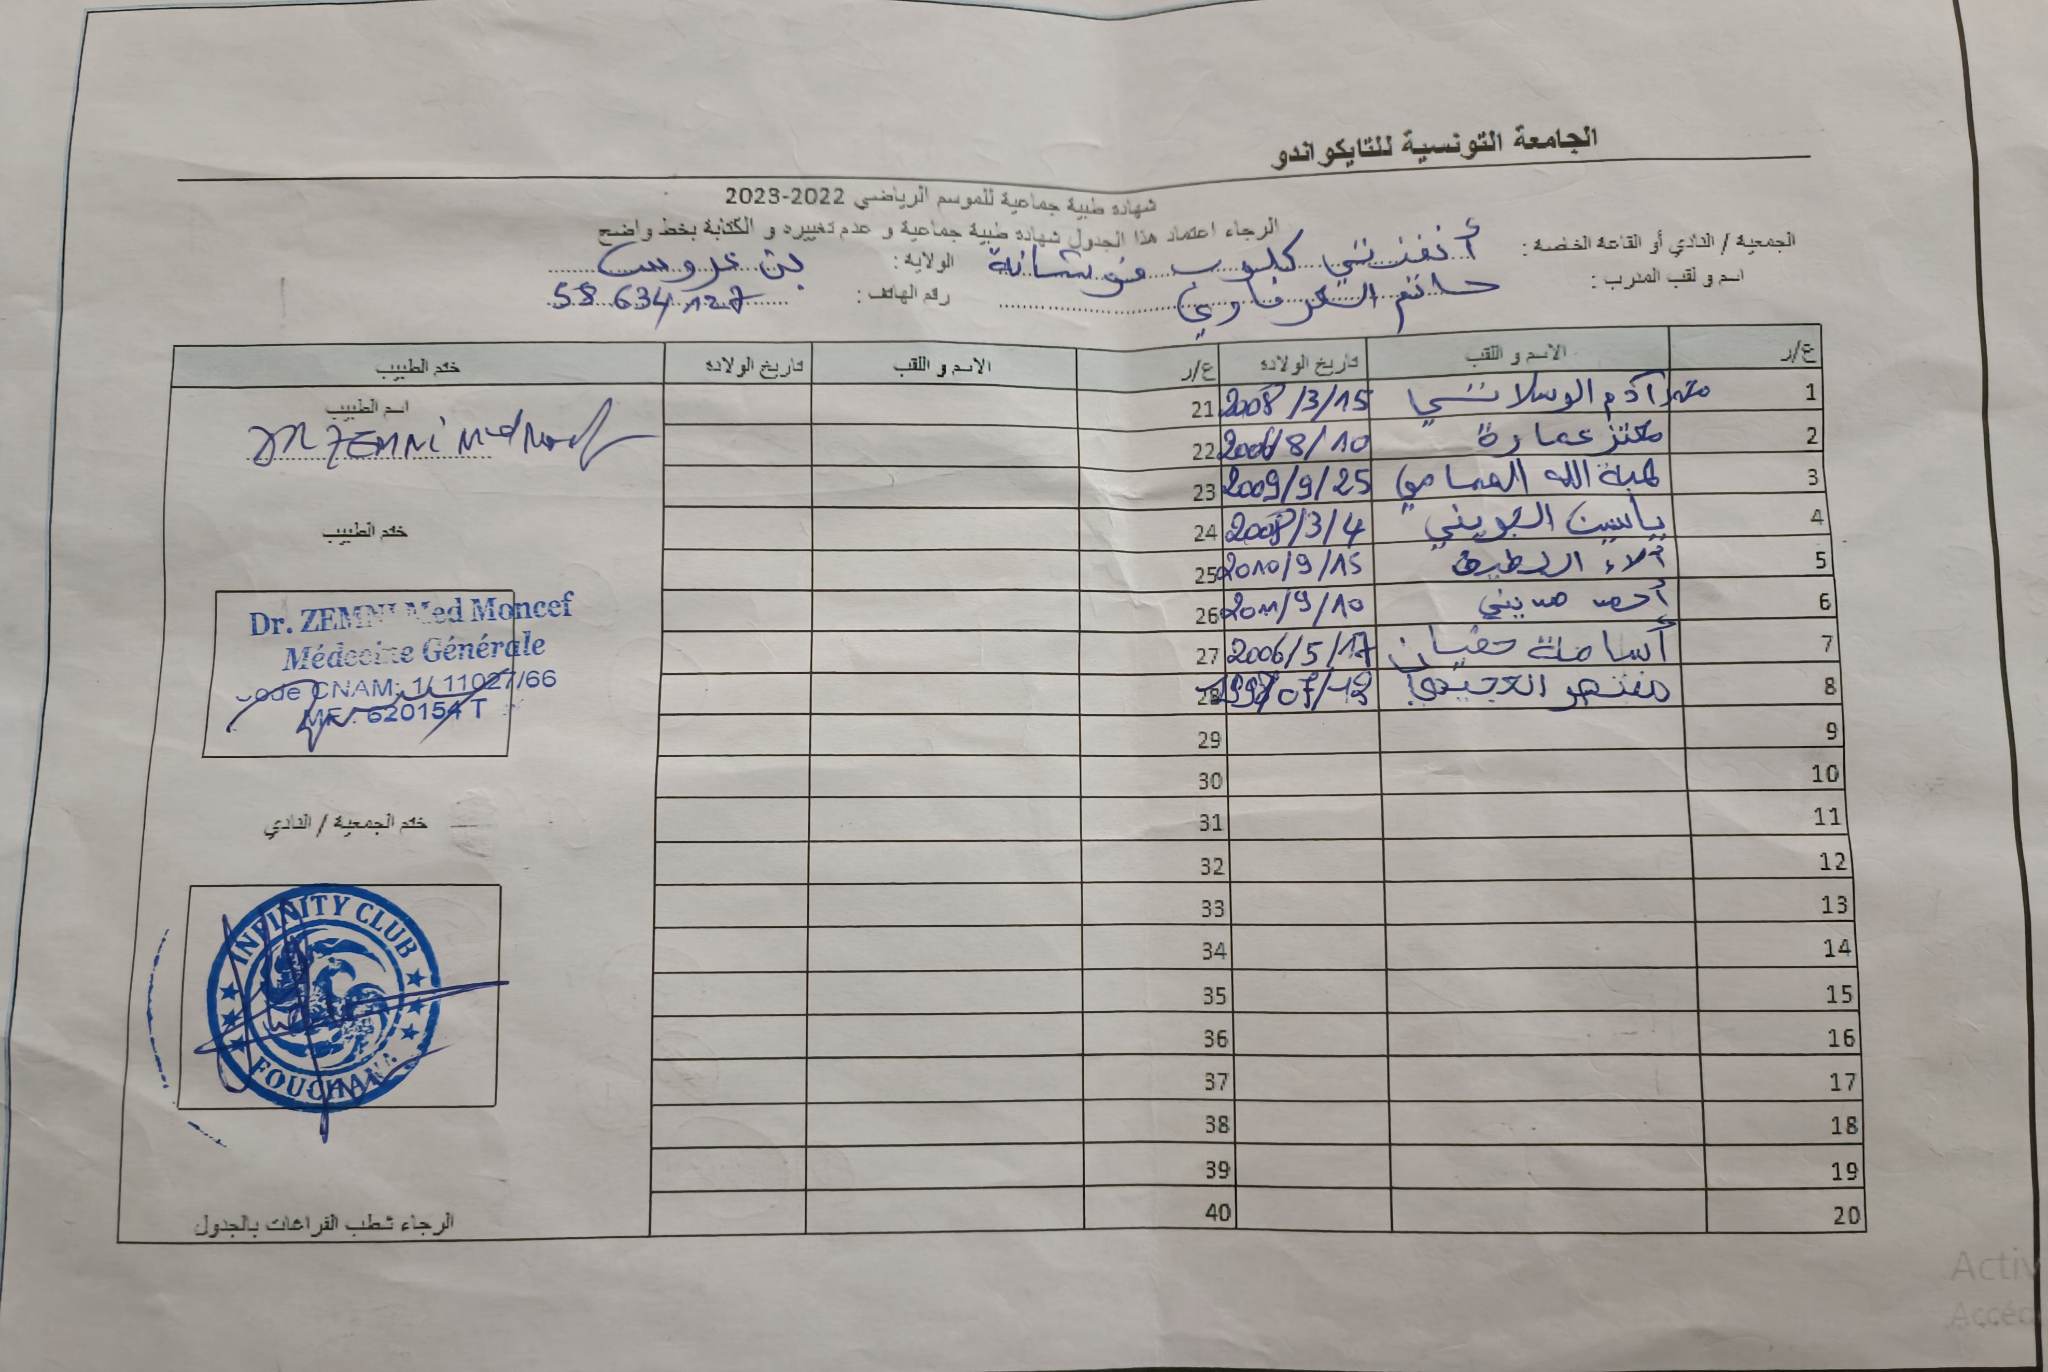 الجامعة التونسية للتايكواندو
شهادة طبية جماعية للموسم الرياضي 2022-2023
الرجاء اعتماد هذا الجدول شهادة طبية جماعية و عدم تغييره و الكتابة بخط واضح
الجمعية / النادي أو القاعة الخاصة : أنفنتي كلوب فوشانة الولاية : بن عروس
اسم و لقب المدرب : حاتم رقم الهاتف : 58 634 127
ع/ر الاسم و اللقب تاريخ الولادة ع/ر الاسم و اللقب تاريخ الولادة ختم الطبيب
1 آدم الوسلاتي 2008/3/15 21
2 معتز عمارة 2006/8/10 22
3 هبة الله 2009/9/25 23
4 ياسين الجويني 2008/3/4 24
5 آلاء 2010/9/15 25
6 أحمد مديني 2011/9/10 26
7 أسامة 2006/5/17 27
8 منتصر العجيمي 28
9 29
10 30
11 31
12 32
13 33
14 34
15 35
16 36
17 37
18 38
19 39
20 40
اسم الطبيب
DR ZEMNI Med Moncef
ختم الطبيب
Dr. ZEMNI Med Moncef
Médecine Générale
Code CNAM: 1/ 11027/66
MF : 620154 T
ختم الجمعية / النادي
INFINITY CLUB
FOUCHANA
الرجاء شطب الفراغات بالجدول
Activ
Accéd